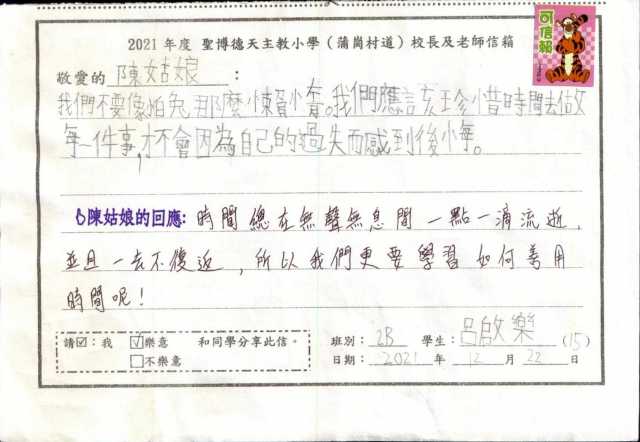 2021 年度 聖博德天主教小學（蒲崗村道）校長及老師信箱
可信箱
敬愛的 陳姑娘 ：
我們不要像怕兔那麼懶惰。我們應該珍惜時間去做
每一件事,才不會因為自己的過失而感到後悔。
陳姑娘的回應: 時間總在無聲無息間一點一滴流逝,
並且一去不復返,所以我們更要學習如何善用
時間呢!
請☑：我 ☑樂意 和同學分享此信。
□不樂意
班別： 2B 學生： 呂啟樂 (15)
日期： 2021 年 12 月 22 日